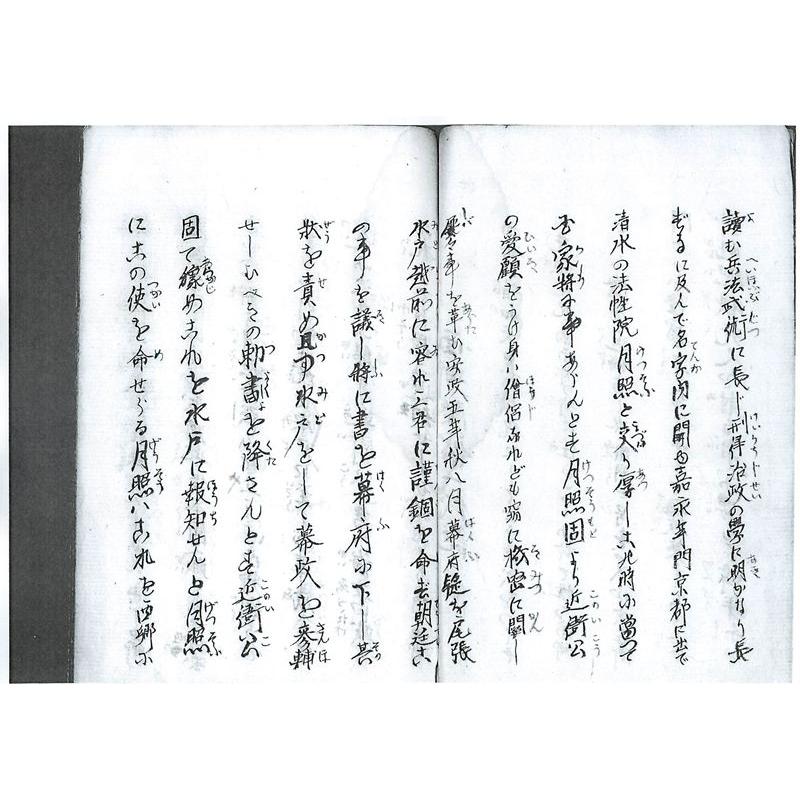 讀む兵法武術に長じ刑律治政の學に明かなり長
ずるに及んで名宇内に聞ゆ嘉永年間京都に出で
清水の法性院月照と交り厚し此時に當つて
家將に事あらんとす月照固より近衛公
の愛顧をうけ身ハ僧侶なれども窃に機密に關し
屡々事を革む安政五年秋八月幕府徒を尾張
水戸越前に容れ三君に謹錮を命ず朝廷こ
の事を議し將に書を幕府に下し其
状を責め且つ水戸をして幕政を參輔
せしむべきの勅書を降さんとす近衛公
固て豫めこれを水戸に報知せんと月照
にこの使を命せらる月照ハこれを西郷に